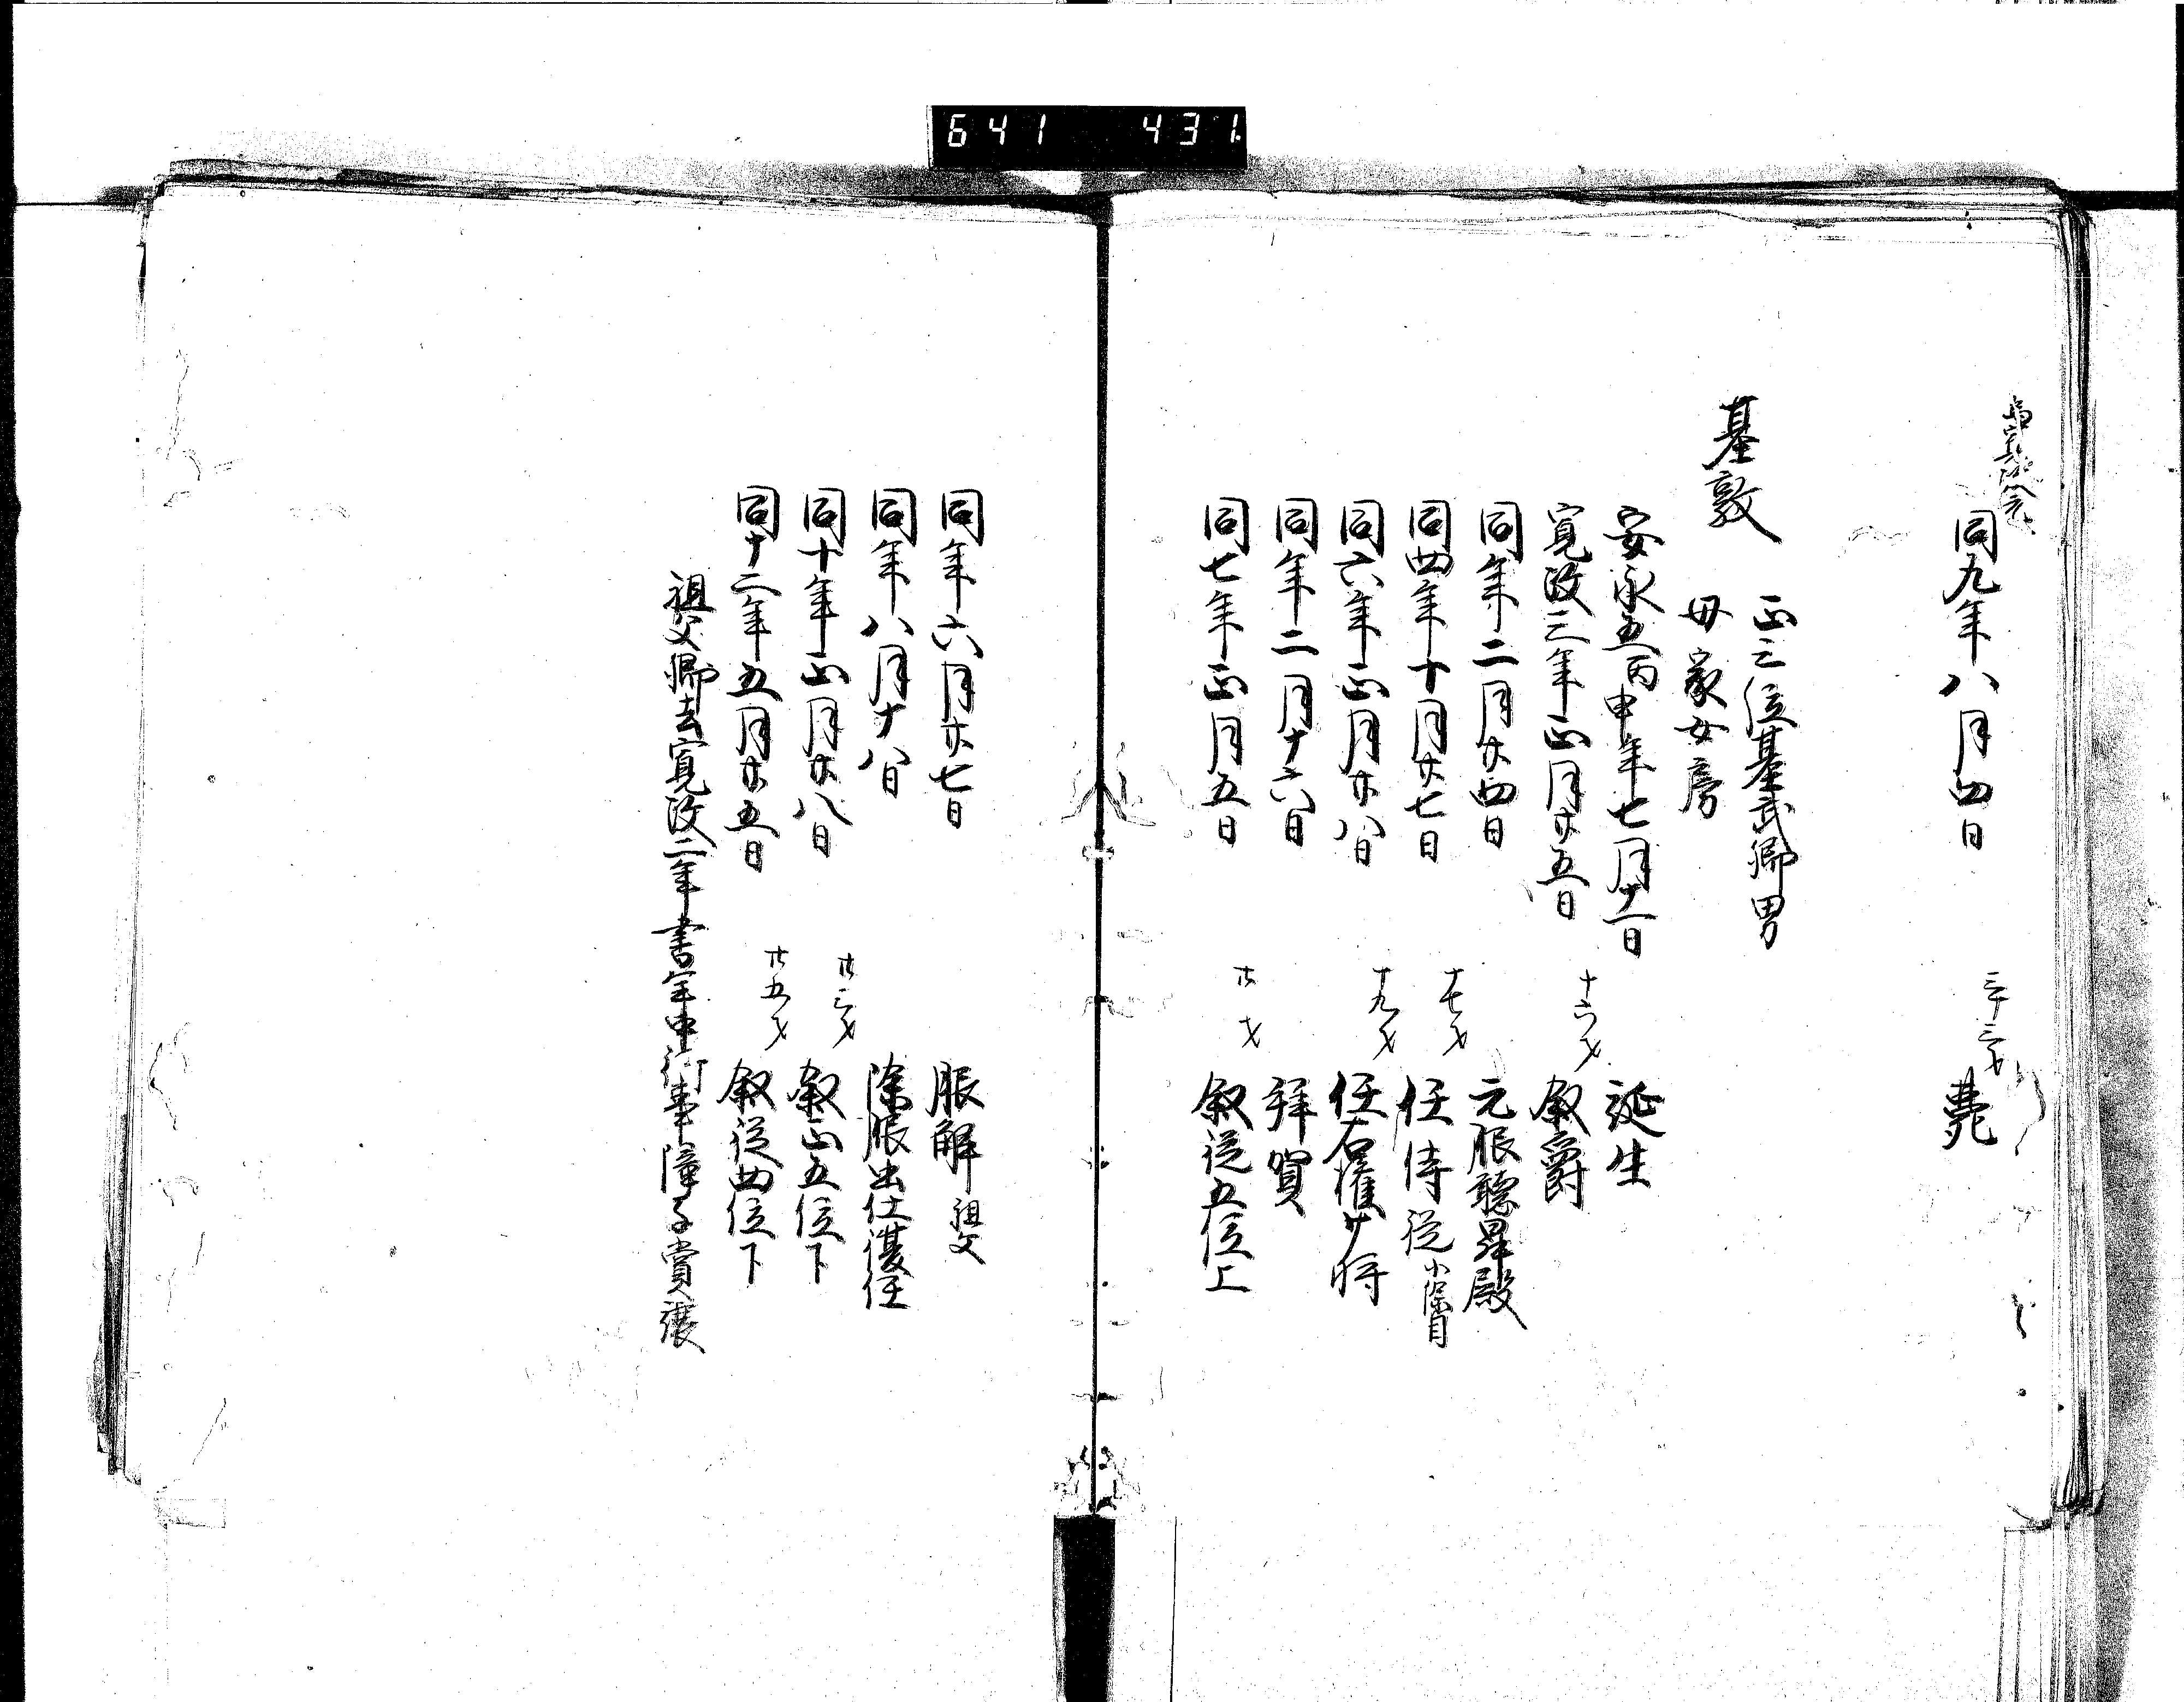 641 431
同九年八月四日 三十三才 薨
基敦
正三位基武卿男
母家女房
安永五丙申年七月十一日 誕生
寛政三年正月廿五日 十六才 叙爵
同年二月廿四日 元服聴昇殿
同四年十月廿七日 十七才 任侍従小除目
同六年正月廿八日 十九才 任右権少将
同年二月十六日 拝賀
同七年正月五日 廿才 叙従五位上
同年六月廿七日 服解祖父
同年八月十八日 除服出仕復任
同十年正月廿八日 廿三才 叙正五位下
同十二年五月廿五日 廿五才 叙従四位下
祖父卿去寛政二年書年中行事障子賞譲